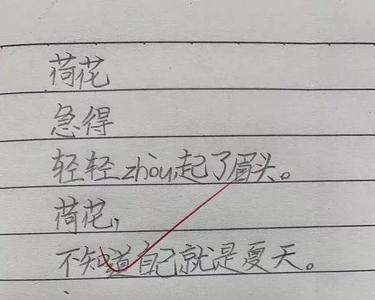 荷花
急得
轻轻zhòu起了眉头。
荷花，
不知道自己就是夏天。